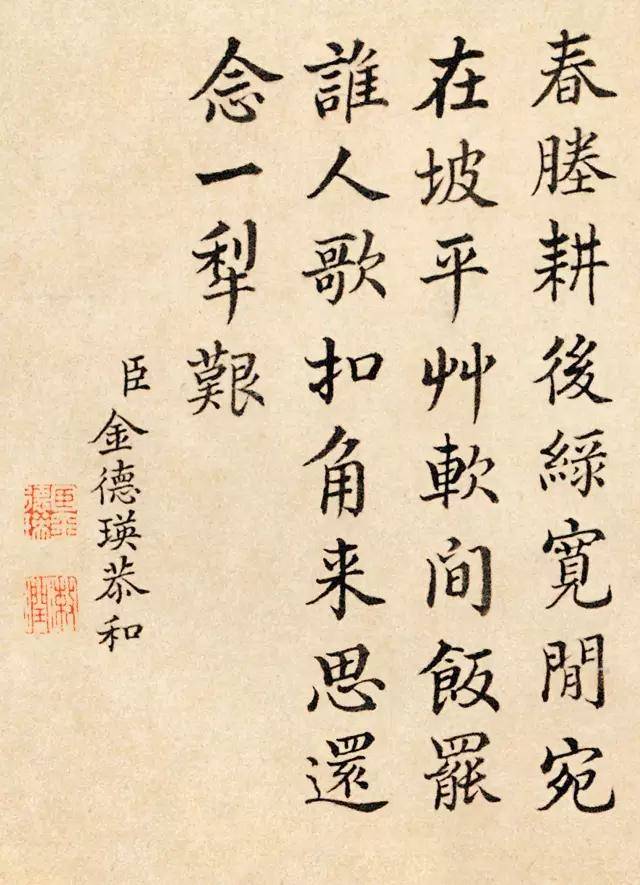 春塍耕後緑寬閒宛
在坡平艸軟間飯罷
誰人歌扣角来思還
念一犁艱
臣金德瑛恭和